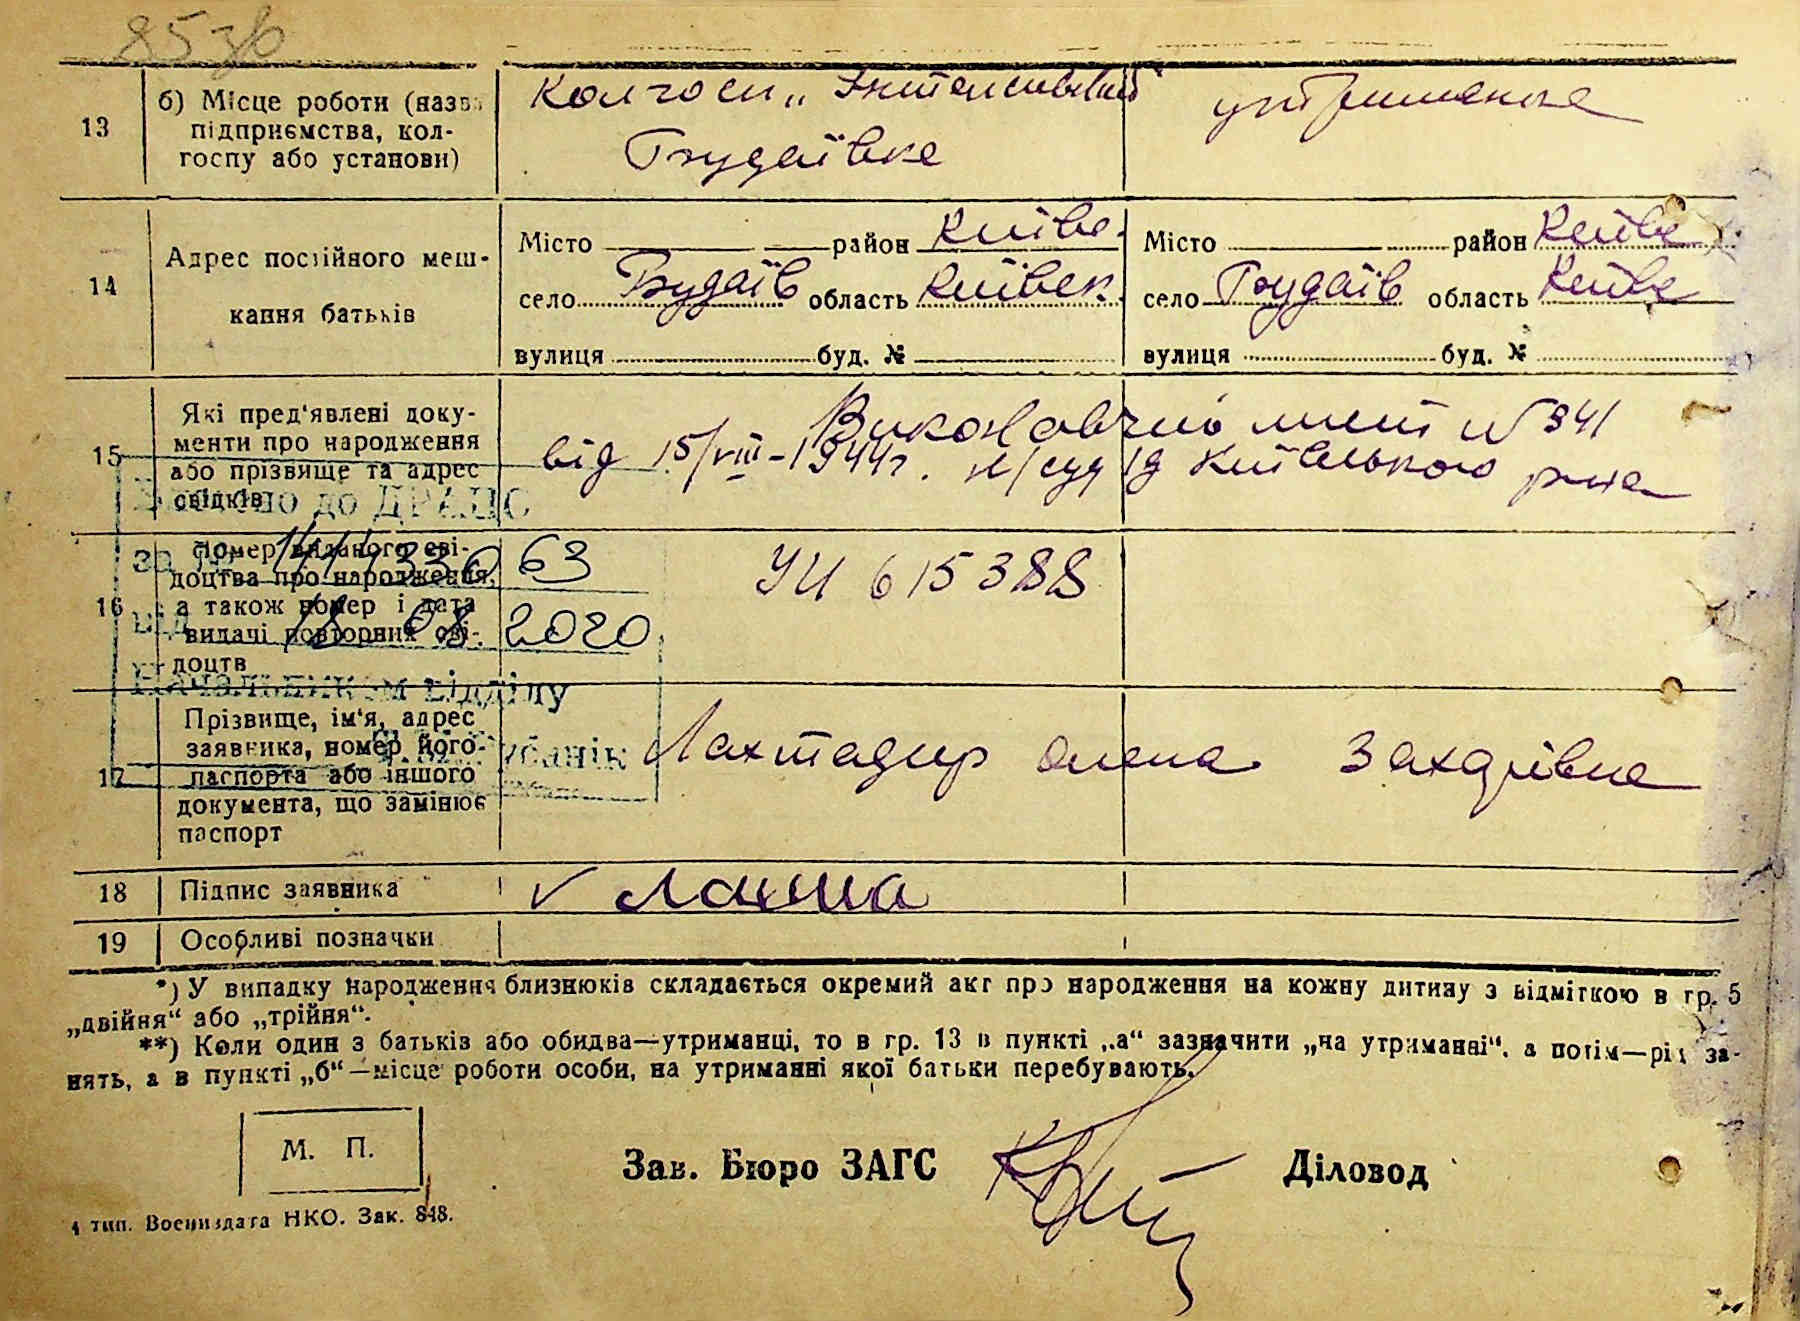 85 зв
13
б) Місце роботи (назва підприємства, колгоспу або установи)
колгосп „Інтенсивний"
Будаївка
утриманка
14
Адрес постійного мешкання батьків
Місто район Київс.
село Будаїв область Київськ.
вулиця буд. №
Місто район Київс
село Будаїв область Київс
вулиця буд. №
15
Які пред'явлені документи про народження або прізвище та адрес свідків
Виконавчий лист № 341
від 15/VIII-1944 г. н/суд Київського р-на
16
Номер виданого свідоцтва про народження, а також номер і дата видачі повторних свідоцтв
УИ 615388
до ДРАЦС
за № 63
від 18 08. 2020
Начальником відділу
17
Прізвище, ім'я, адрес заявника, номер його паспорта або іншого документа, що замінює паспорт
Лахтадир Олена Захарівна
18
Підпис заявника
v Лахта
19
Особливі позначки
*) У випадку народження близнюків складається окремий акт про народження на кожну дитину з відміткою в гр. 5
„двійня“ або „трійня“.
**) Коли один з батьків або обидва—утриманці, то в гр. 13 в пункті „а“ зазначити „на утриманні“, а потім—рід за-
нять, а в пункті „б“—місце роботи особи, на утриманні якої батьки перебувають.
М. П.
Зав. Бюро ЗАГС
Діловод
4 тип. Воениздата НКО. Зак. 848.